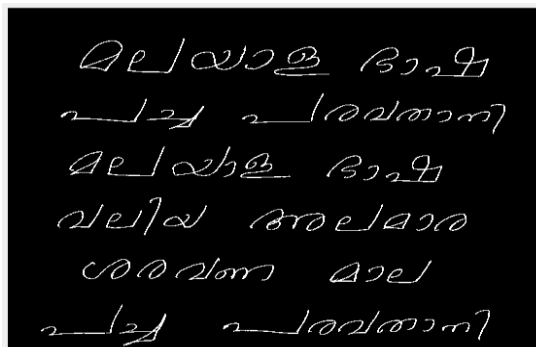 മലയാള ഭാഷ
പച്ച പരവതാനി
മലയാള ഭാഷ
വലിയ അലമാര
ശരവണ മാല
പച്ച പരവതാനി